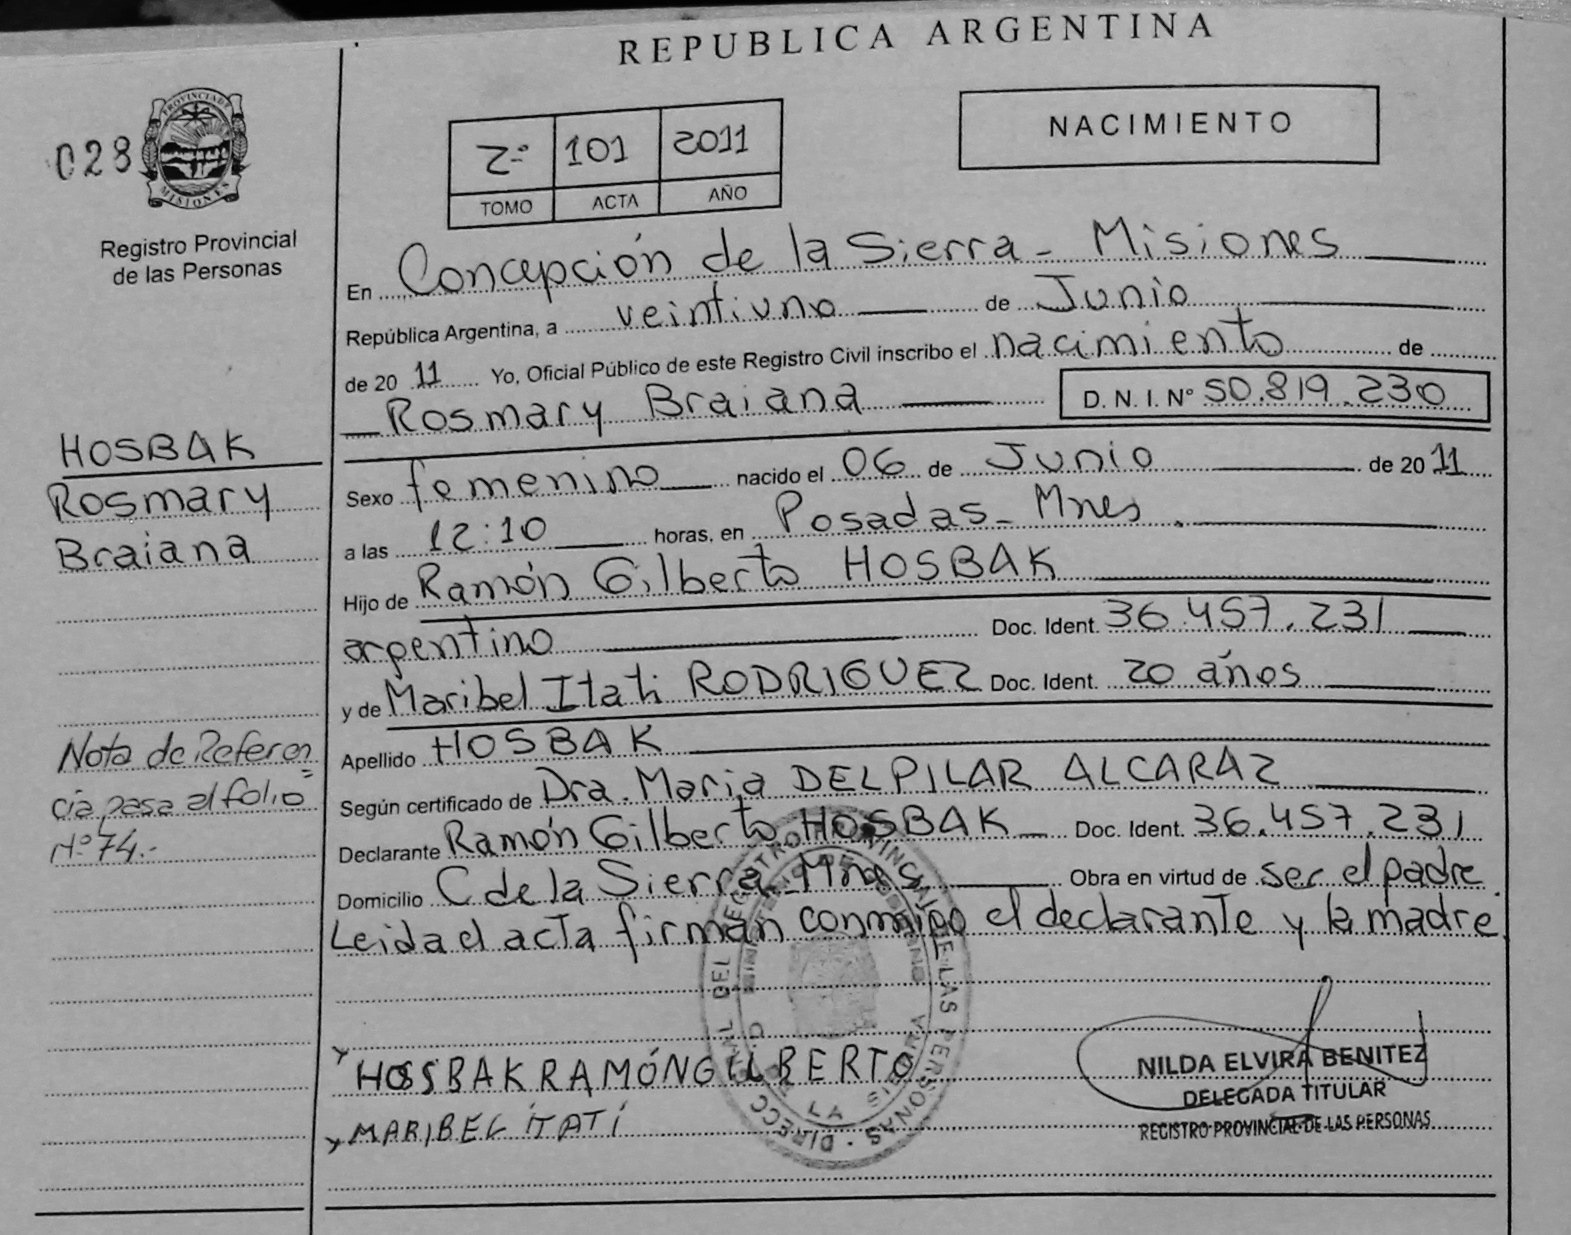 REPUBLICA ARGENTINA
028
PROVINCIA DE
MISIONES
Registro Provincial
de las Personas
2º 101 2011
TOMO ACTA AÑO
NACIMIENTO
En Concepción de la Sierra - Misiones
República Argentina, a veintiuno de Junio
de 20 11 Yo, Oficial Público de este Registro Civil inscribo el nacimiento de
Rosmary Braiana D. N. I. Nº 50.819.230
HOSBAK
Rosmary
Braiana
Sexo femenino nacido el 06 de Junio de 20 11
a las 12:10 horas, en Posadas - Mnes.
Hijo de Ramón Gilberto HOSBAK
argentino Doc. Ident. 36.457.231
y de Maribel Itati RODRIGUEZ Doc. Ident. 20 años
Apellido HOSBAK
Según certificado de Dra. Maria DEL PILAR ALCARAZ
Declarante Ramón Gilberto HOSBAK Doc. Ident. 36.457.231
Domicilio C de la Sierra - Mnes Obra en virtud de ser el padre.
Leida el acta firman conmigo el declarante y la madre
Nota de Referen
cia pasa al folio
Nº 74.-
HOSBAK RAMÓN GILBERTO
MARIBEL ITATÍ
NILDA ELVIRA BENITEZ
DELEGADA TITULAR
REGISTRO PROVINCIAL DE LAS PERSONAS